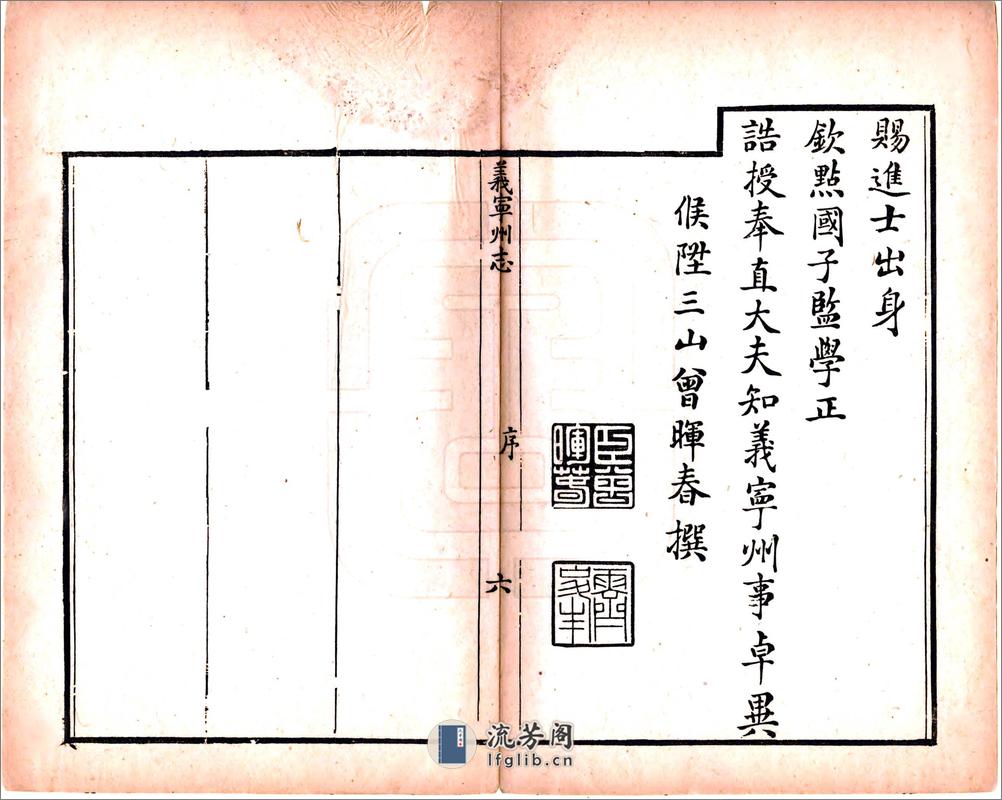 賜進士出身
欽點國子監學正
誥授奉直大夫知義寧州事卓異
候陞三山曾暉春撰
臣曾暉春
義寧州志
序
六
流芳阁
lfglib.cn